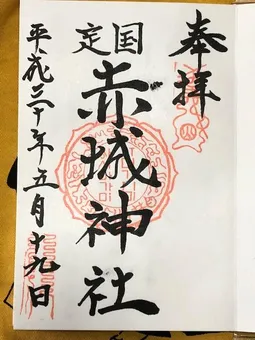 奉拝
国定
赤城神社
平成三十年五月十九日